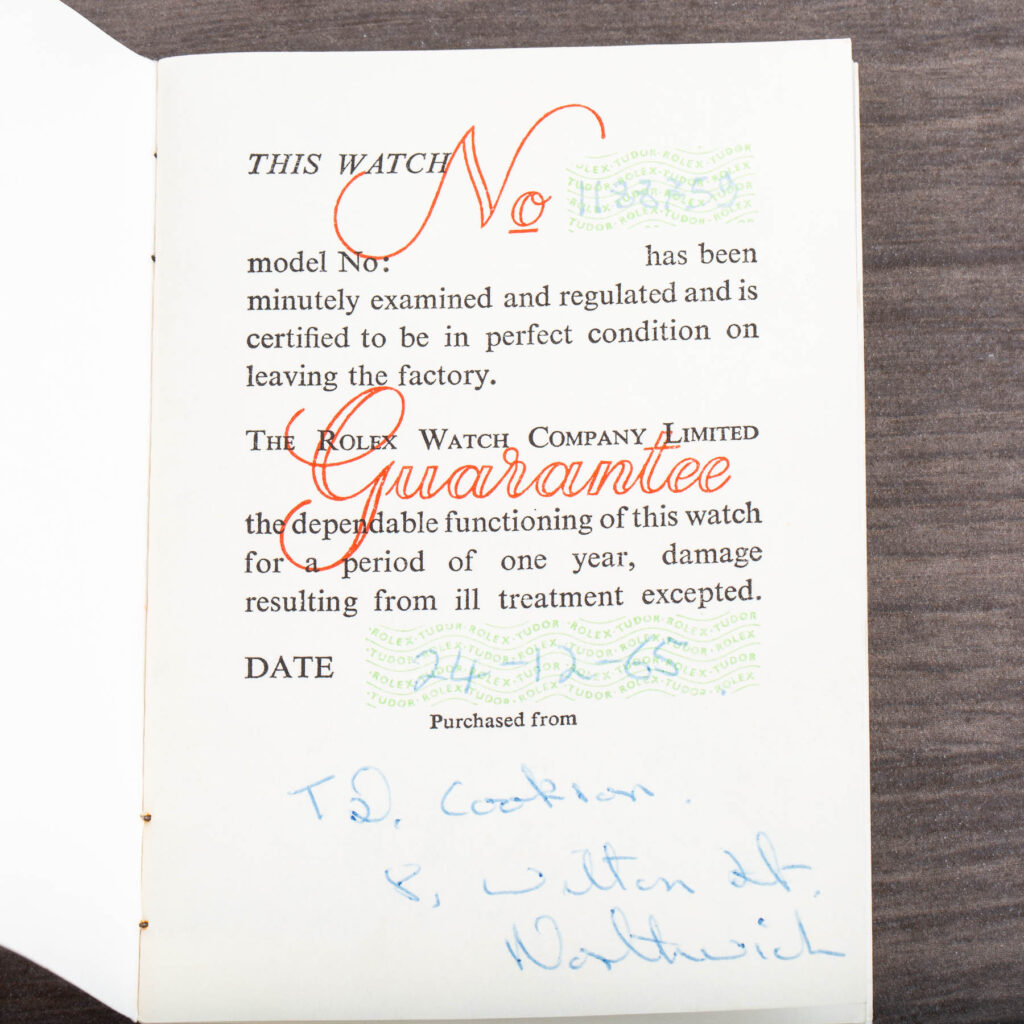 THIS WATCH No 1133759
model No: has been
minutely examined and regulated and is
certified to be in perfect condition on
leaving the factory.
THE ROLEX WATCH COMPANY LIMITED
Guarantee
the dependable functioning of this watch
for a period of one year, damage
resulting from ill treatment excepted.
DATE 24-12-65
Purchased from
T.D. Cookson.
8, Wilton St.
Northwich